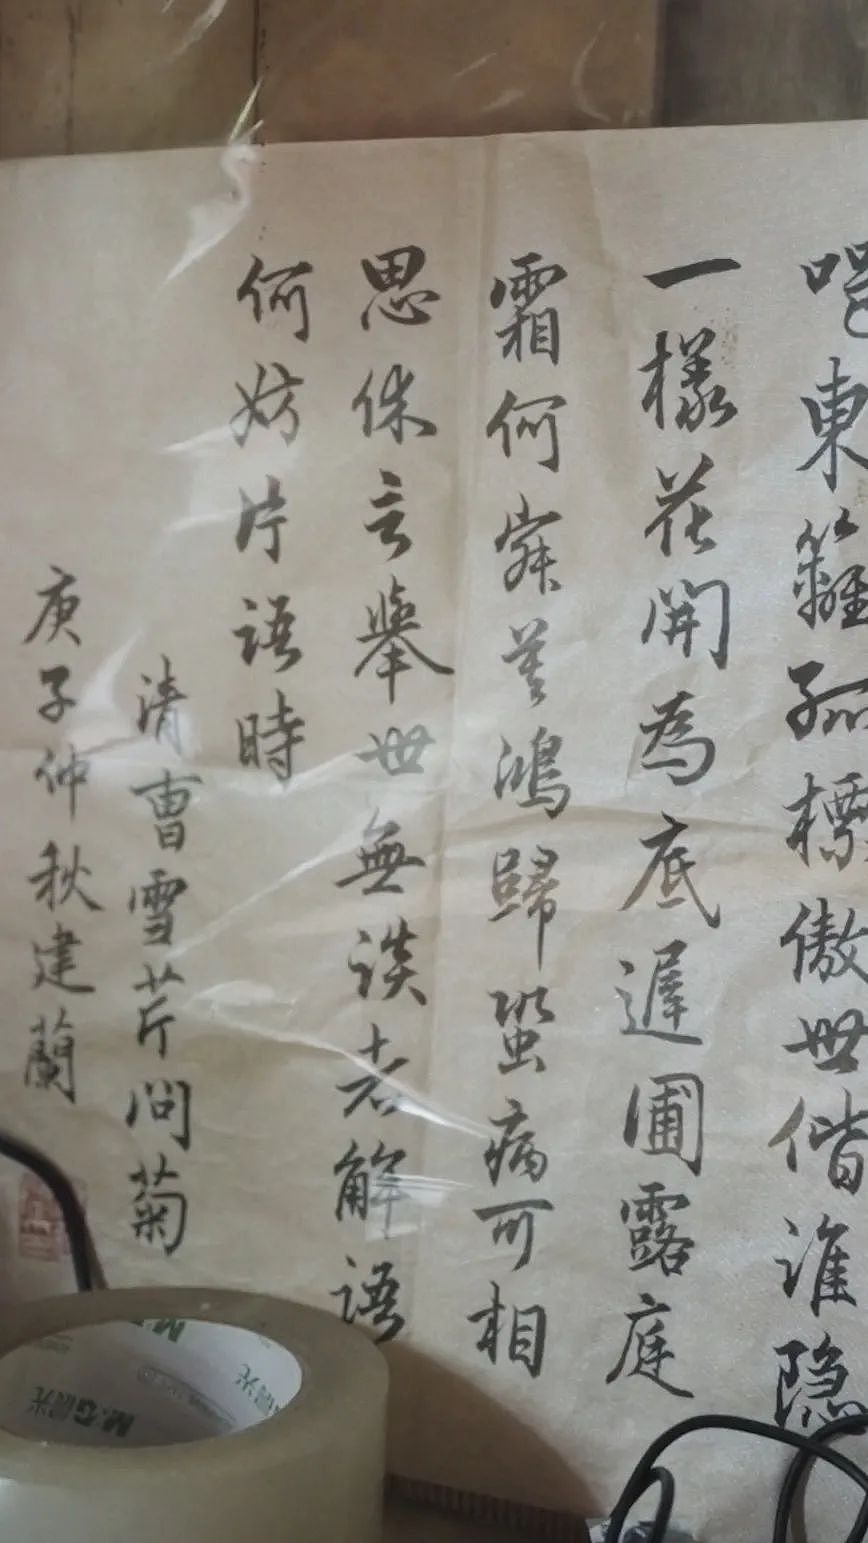 東籬孤標傲世偕誰隱
一樣花開為底遲圃露庭
霜何寂寞鴻歸蛩病可相
思休言舉世無談者解語
何妨片語時
清曹雪芹問菊
庚子仲秋建蘭
M&G晨光